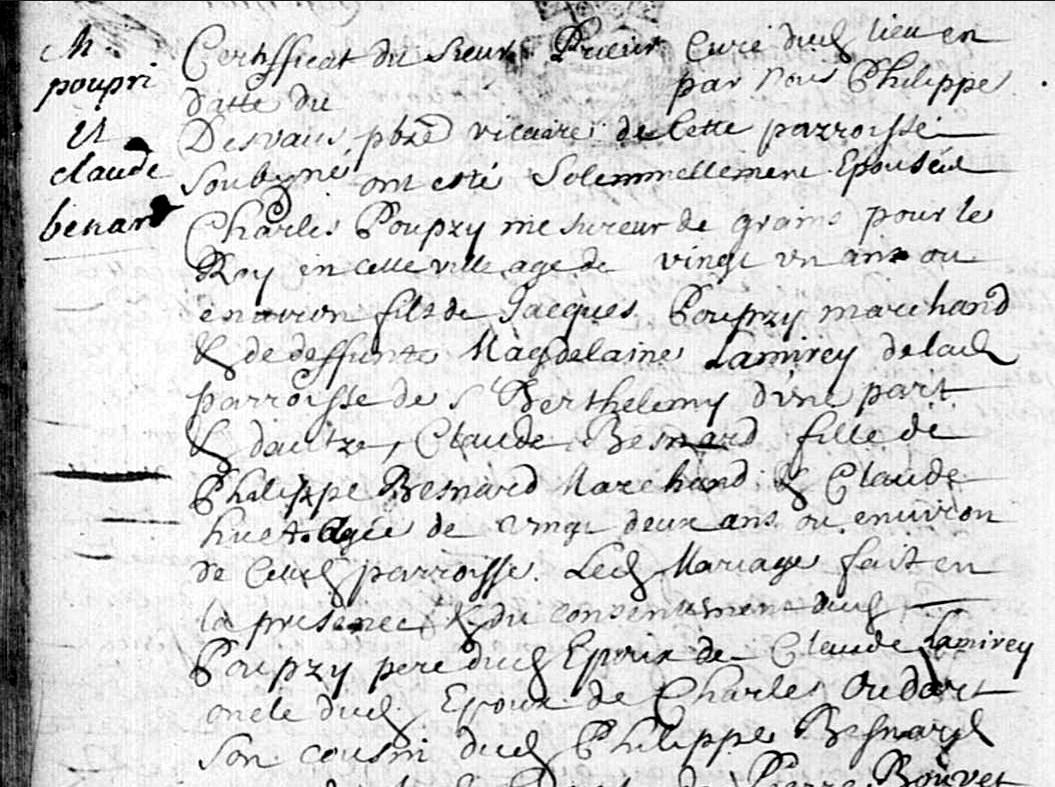 Ch
poupri
Et
claude
benard
Certifficat du Sieur Prieur Curé dud lieu en
datte du par Nous Philippe
Desvaux pbre vicaire de Cette parroisse
Soubzné ont esté Solemnellement Epousés
Charles Poupry mesureur de grains pour le
Roy en cette ville age de vingt un ans ou
environ fils de Jacques Poupry marchand
& de deffunte Magdelaine Lamirey de lad
parroisse de St Berthelemy d'une part
& d'autre, Claude Besnard fille de
Philippe Besnard Marchand & Claude
huet agée de vingt deux ans ou environ
de Cetted parroisse. Led Mariage fait en
la presence & du consentement dud
Poupry pere dud Epoux de Claude Lamirey
oncle dud Epoux de Charles Oudart
son cousin dud Philippe Besnard
Pierre Bouvet